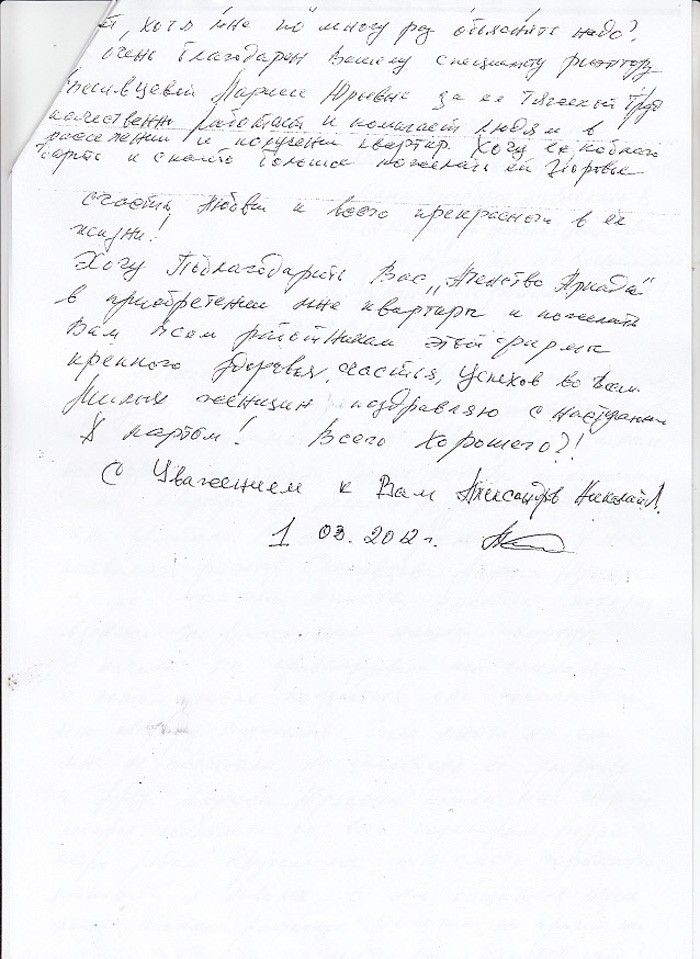 , хотя мне по много раз объяснять надо?.
очень благодарен Вашему специалисту риэлтору
Ларисе Юрьевне за её тяжелый труд
качественно работает и помогает людям в
расселении и получении квартир. Хочу ей
и сказать больше пожелать ей здоровье
счастья, любви и всего прекрасного в её
жизни!
Хочу Поблагодарить Вас, „Агенство Ариада"
в приобретении мне квартиры и пожелать
Вам всем работникам этой фирмы
крепкого здоровья, счастья, успехов во всем.
Милых женщин поздравляю с наступающим
8 мартом! Всего Хорошего?!
С Уважением к Вам Александров Николай А.
1 03. 2012 г.